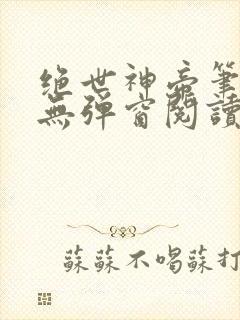 绝世神帝筆
無彈窗閱讀
蘇蘇不喝蘇打